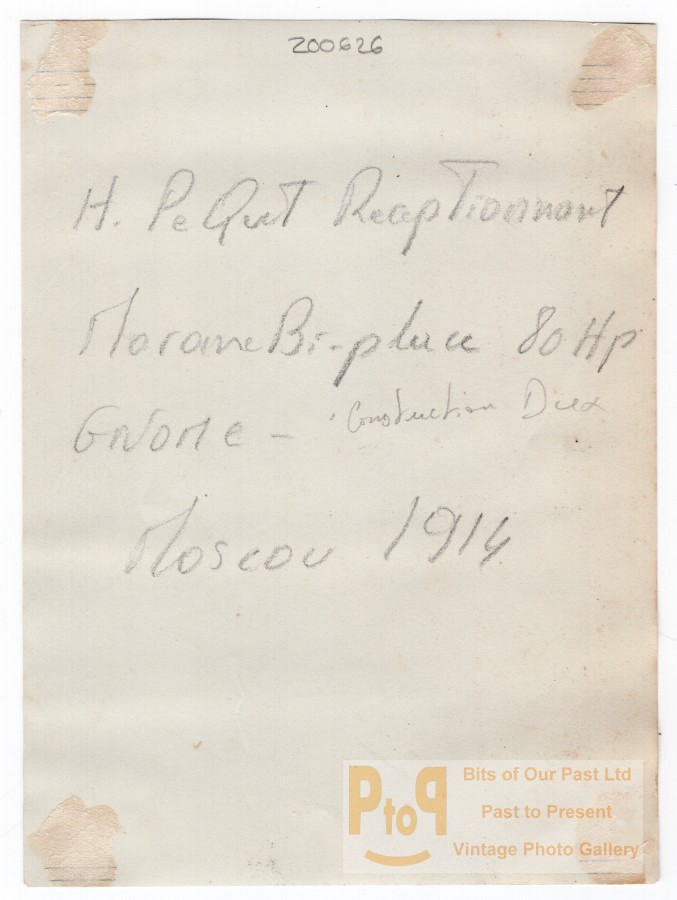 200626
H. PeQuet Receptionnant
Morane Bi-place 80 Hp
GNOME - Construction Dux
Moscou 1914
PtoP
Bits of Our Past Ltd
Past to Present
Vintage Photo Gallery